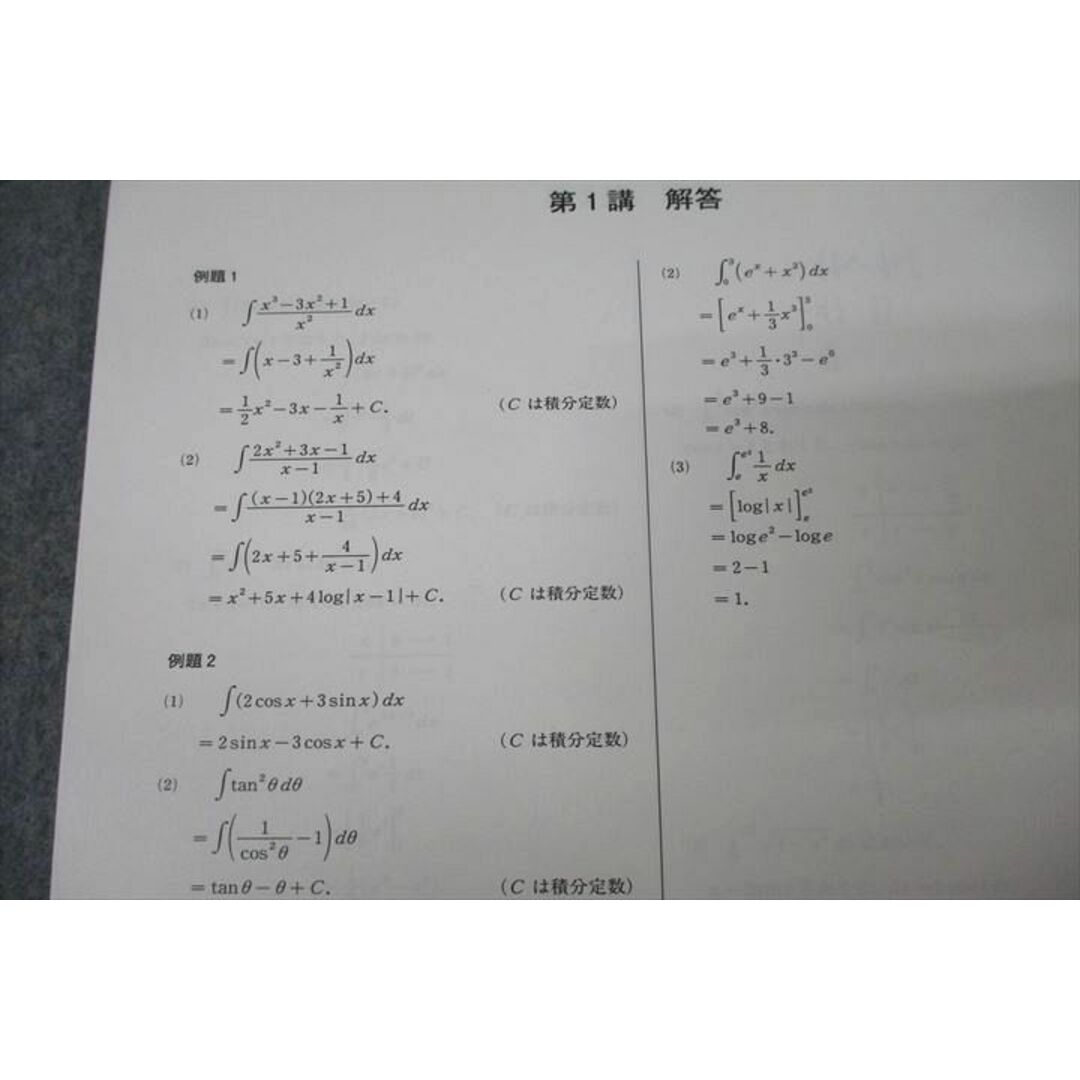 第1講 解答
例題1
(1) ∫ (x³−3x²+1)/x² dx
=∫(x−3+1/x²)dx
=1/2 x²−3x−1/x+C. (C は積分定数)
(2) ∫ (2x²+3x−1)/(x−1) dx
=∫ ((x−1)(2x+5)+4)/(x−1) dx
=∫(2x+5+4/(x−1))dx
=x²+5x+4log|x−1|+C. (C は積分定数)
例題2
(1) ∫(2cosx+3sinx)dx
=2sinx−3cosx+C. (C は積分定数)
(2) ∫tan²θdθ
=∫(1/cos²θ−1)dθ
=tanθ−θ+C. (C は積分定数)
(2) ∫₀³(eˣ+x²)dx
=[eˣ+1/3 x³]₀³
=e³+1/3・3³−e⁰
=e³+9−1
=e³+8.
(3) ∫_e^{e²} 1/x dx
=[log|x|]_e^{e²}
=loge²−loge
=2−1
=1.